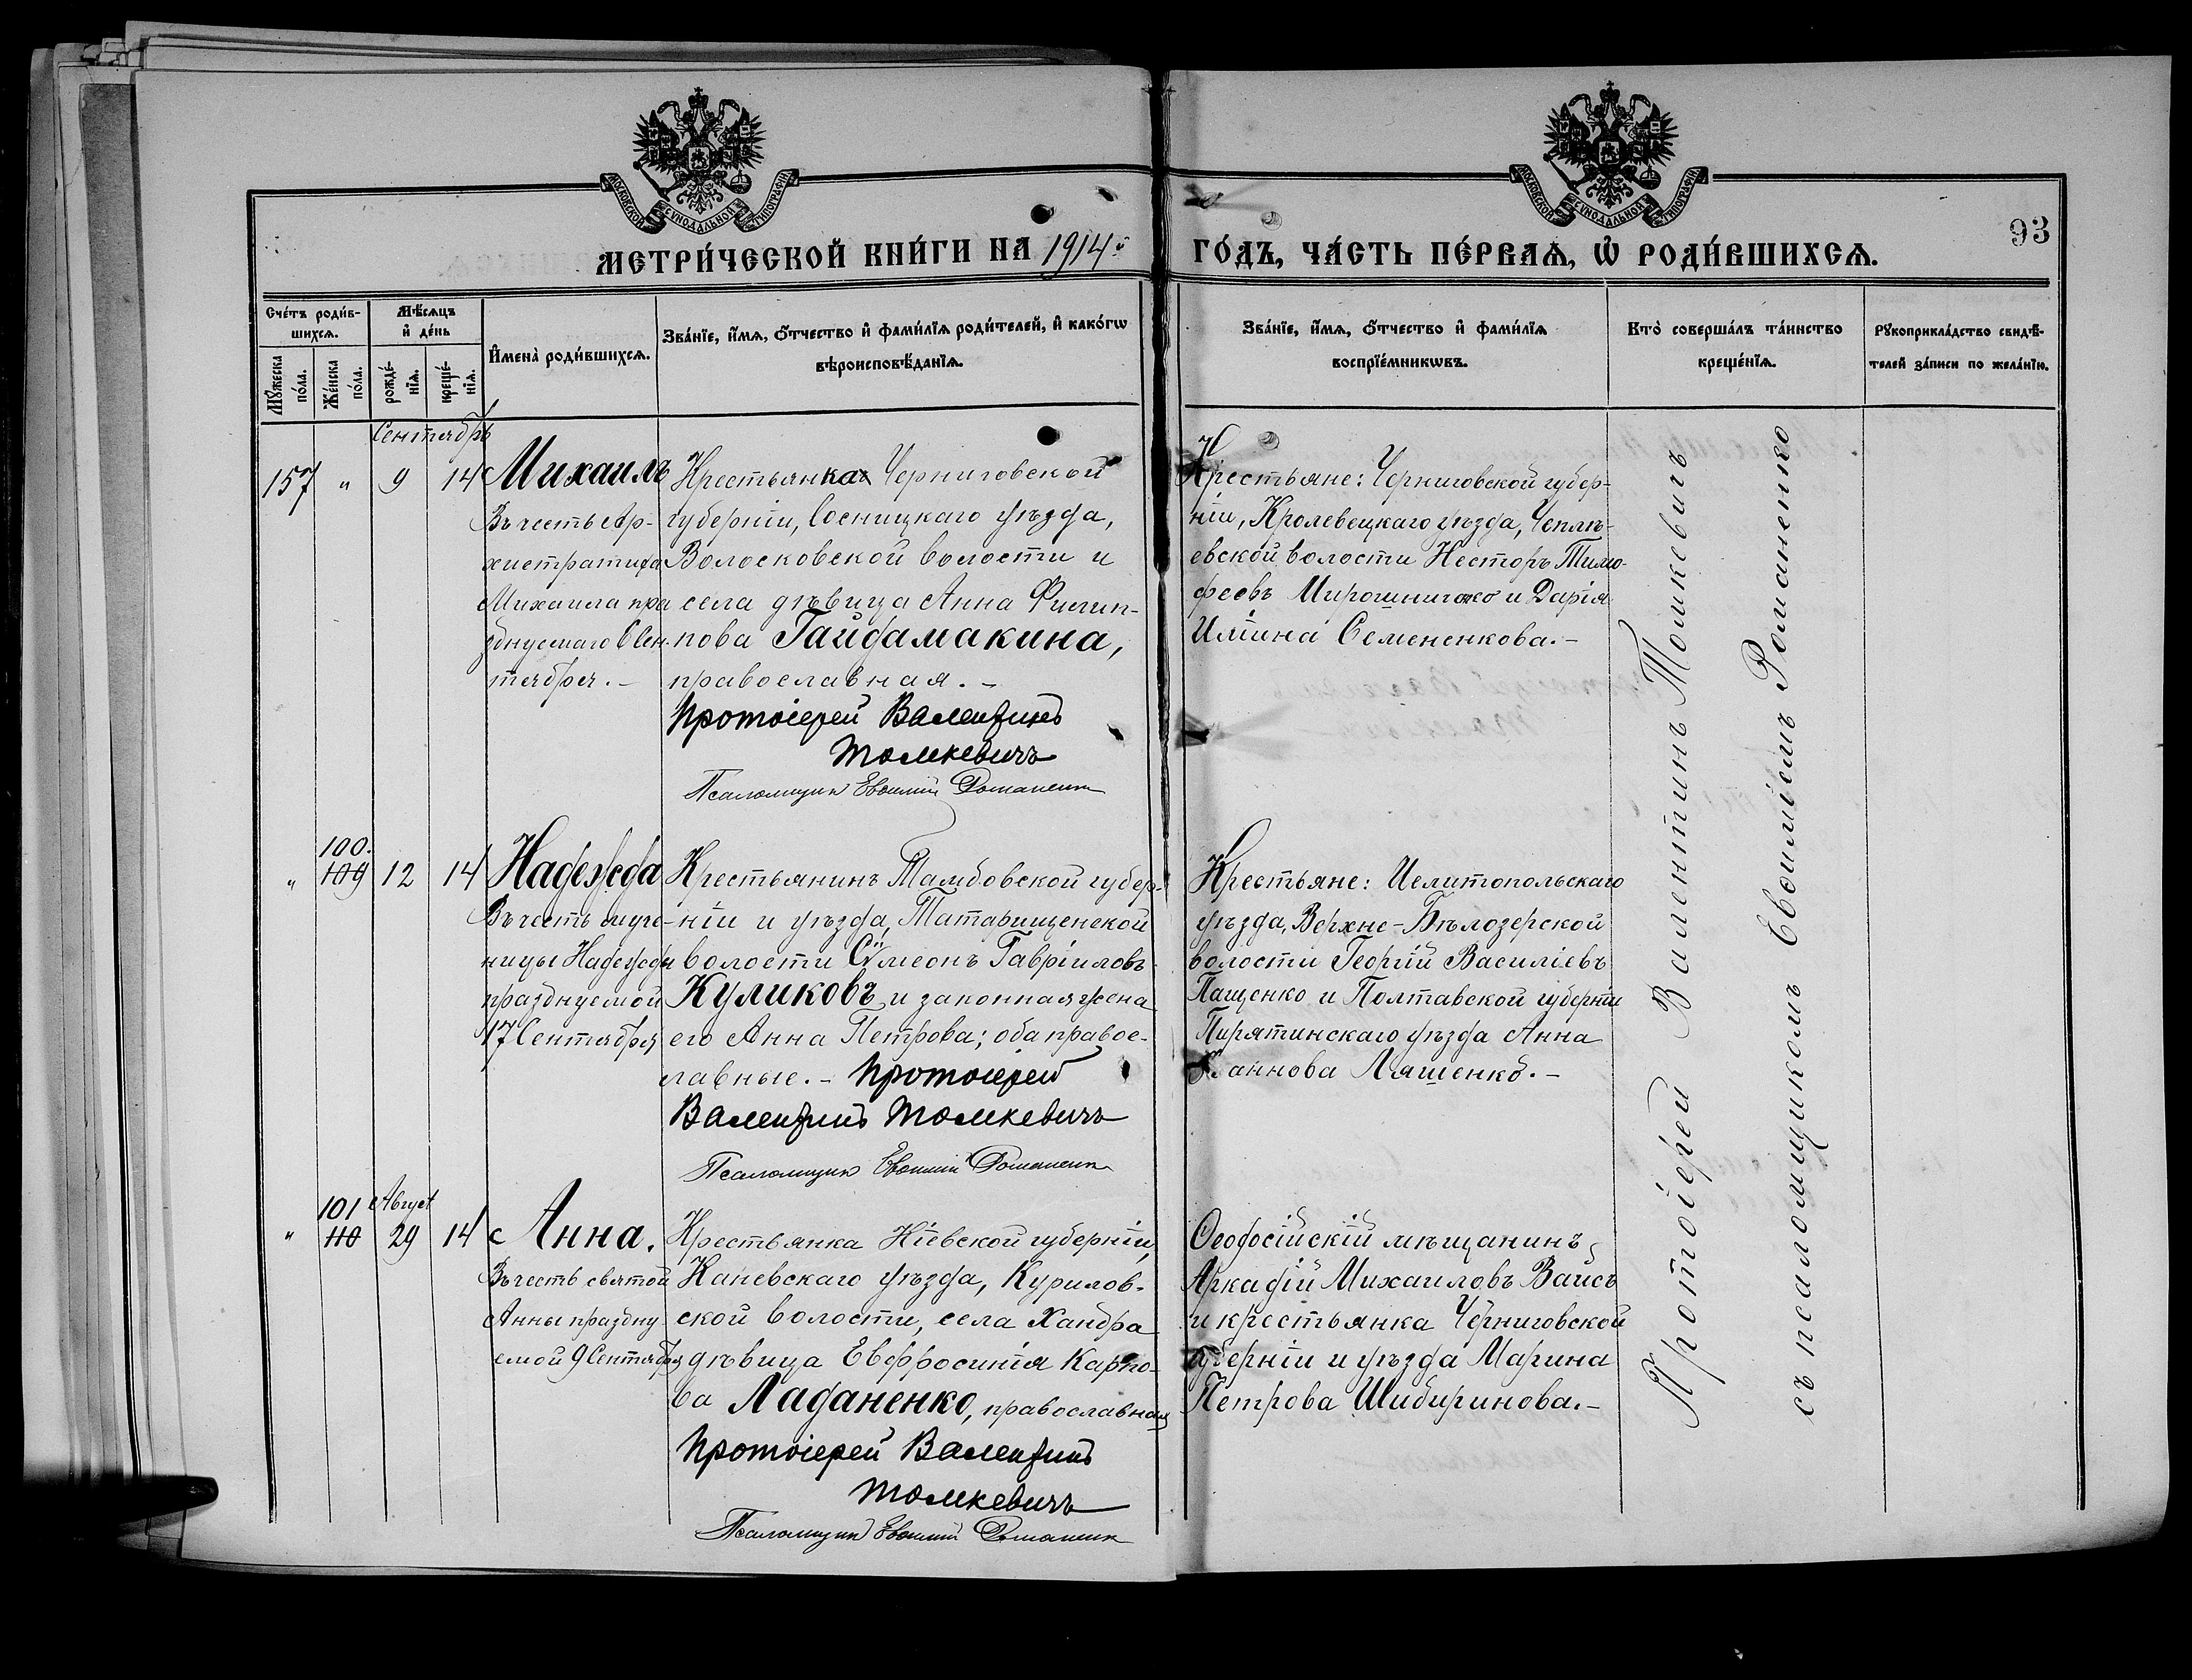 МОСКОВСКОЙ СѴНОДАЛЬНОЙ ТИПОГРАФІИ
МОСКОВСКОЙ СѴНОДАЛЬНОЙ ТИПОГРАФІИ
93
МЕТРИ́ЧЕСКОЙ КНИ́ГИ НА 1914й ГО́ДЪ, ЧА́СТЬ ПЕ́РВАѦ, Ѡ҆ РОДИ́ВШИХСѦ.
Сче́тъ роди́в-
шихсѧ.
Мꙋ́жеска по́ла.
Же́нска по́ла.
Мѣ́сѧцъ
и҆ де́нь
рожде́-нїѧ.
креще́-нїѧ.
И҆мена̀ роди́вшихсѧ.
Зва́нїе, и҆́мѧ, ѻ҆́тчество и҆ фами́лїѧ роди́телей, и҆ како́гѡ
вѣроисповѣ́данїѧ.
Зва́нїе, и҆́мѧ, ѻ҆́тчество и҆ фами́лїѧ
воспрїе́мникѡвъ.
Кто̀ соверша́лъ та́инство
креще́нїѧ.
Рꙋкоприкла́дство свидѣ́-
телей за́писи по жела́нїю.
Сентябрь
157 " 9 14 Михаилъ
Въ честь Ар-
хистратига
Михаила пра
зднуемаго 6 Сен
тября.-
Крестьянка Черниговской
губерніи, Сосницкаго уѣзда,
Волосковской волости и
села дѣвица Анна Филип-
пова Гайдамакина,
православная.-
Протоіерей Валентинъ
Томкевичъ
Псаломщик Евфимій Романенко
Крестьяне: Черниговской губер-
ніи, Кролевецкаго уѣзда, Чеплѣ-
евской волости Несторъ Тимо-
феевъ Мирошниченко и Дарія
Иліина Семененкова.-
" 100. 109 12 14 Надежда
Въ честь муче-
ницы Надежды
празднуемой
17 Сентября
Крестьянинъ Тамбовской губер-
ніи и уѣзда, Татарищенской
волости Сѵмеонъ Гавріиловъ
Куликовъ и законная жена
его Анна Петрова; оба правос-
лавные.- Протоіерей
Валентинъ Томкевичъ
Псаломщик Евфимій Романенко
Крестьяне: Мелитопольскаго
уѣзда, Верхне-Бѣлозерской
волости Георгій Василіевъ
Пащенко и Полтавской губерніи
Пирятинскаго уѣзда Анна
Іоаннова Ляшенко.-
Август
" 101 110 29 14 Анна.
Въ честь святой
Анны праздну
емой 9 Сентября
Крестьянка Кіевской губерніи,
Каневскаго уѣзда, Курилов-
ской волости, села Хандра
дѣвица Евфросинія Карпо-
ва Ладаненко, православная
Протоіерей Валентинъ
Томкевичъ
Псаломщик Евфимій Романенко
Ѳеодосійскій мѣщанинъ
Аркадій Михаиловъ Вайсъ
и крестьянка Черниговской
губерніи и уѣзда Марина
Петрова Шибиринова.-
Протоіерей Валентинъ Томкевичъ
съ псаломщикомъ Евфиміемъ Романенко